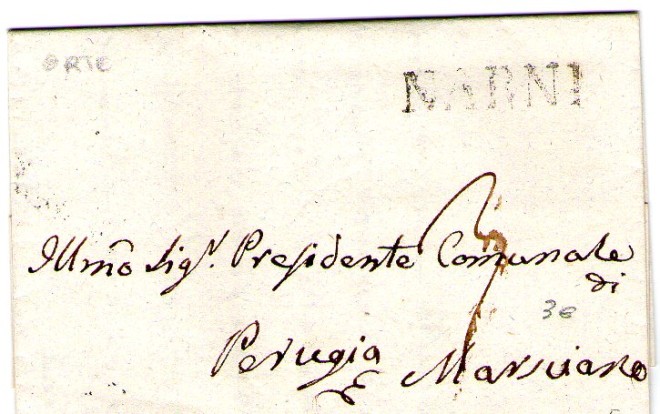 ORTE
NARNI
3
Illmō Sigr. Presidente Comunale
di
3€
Perugia
E Marsciano